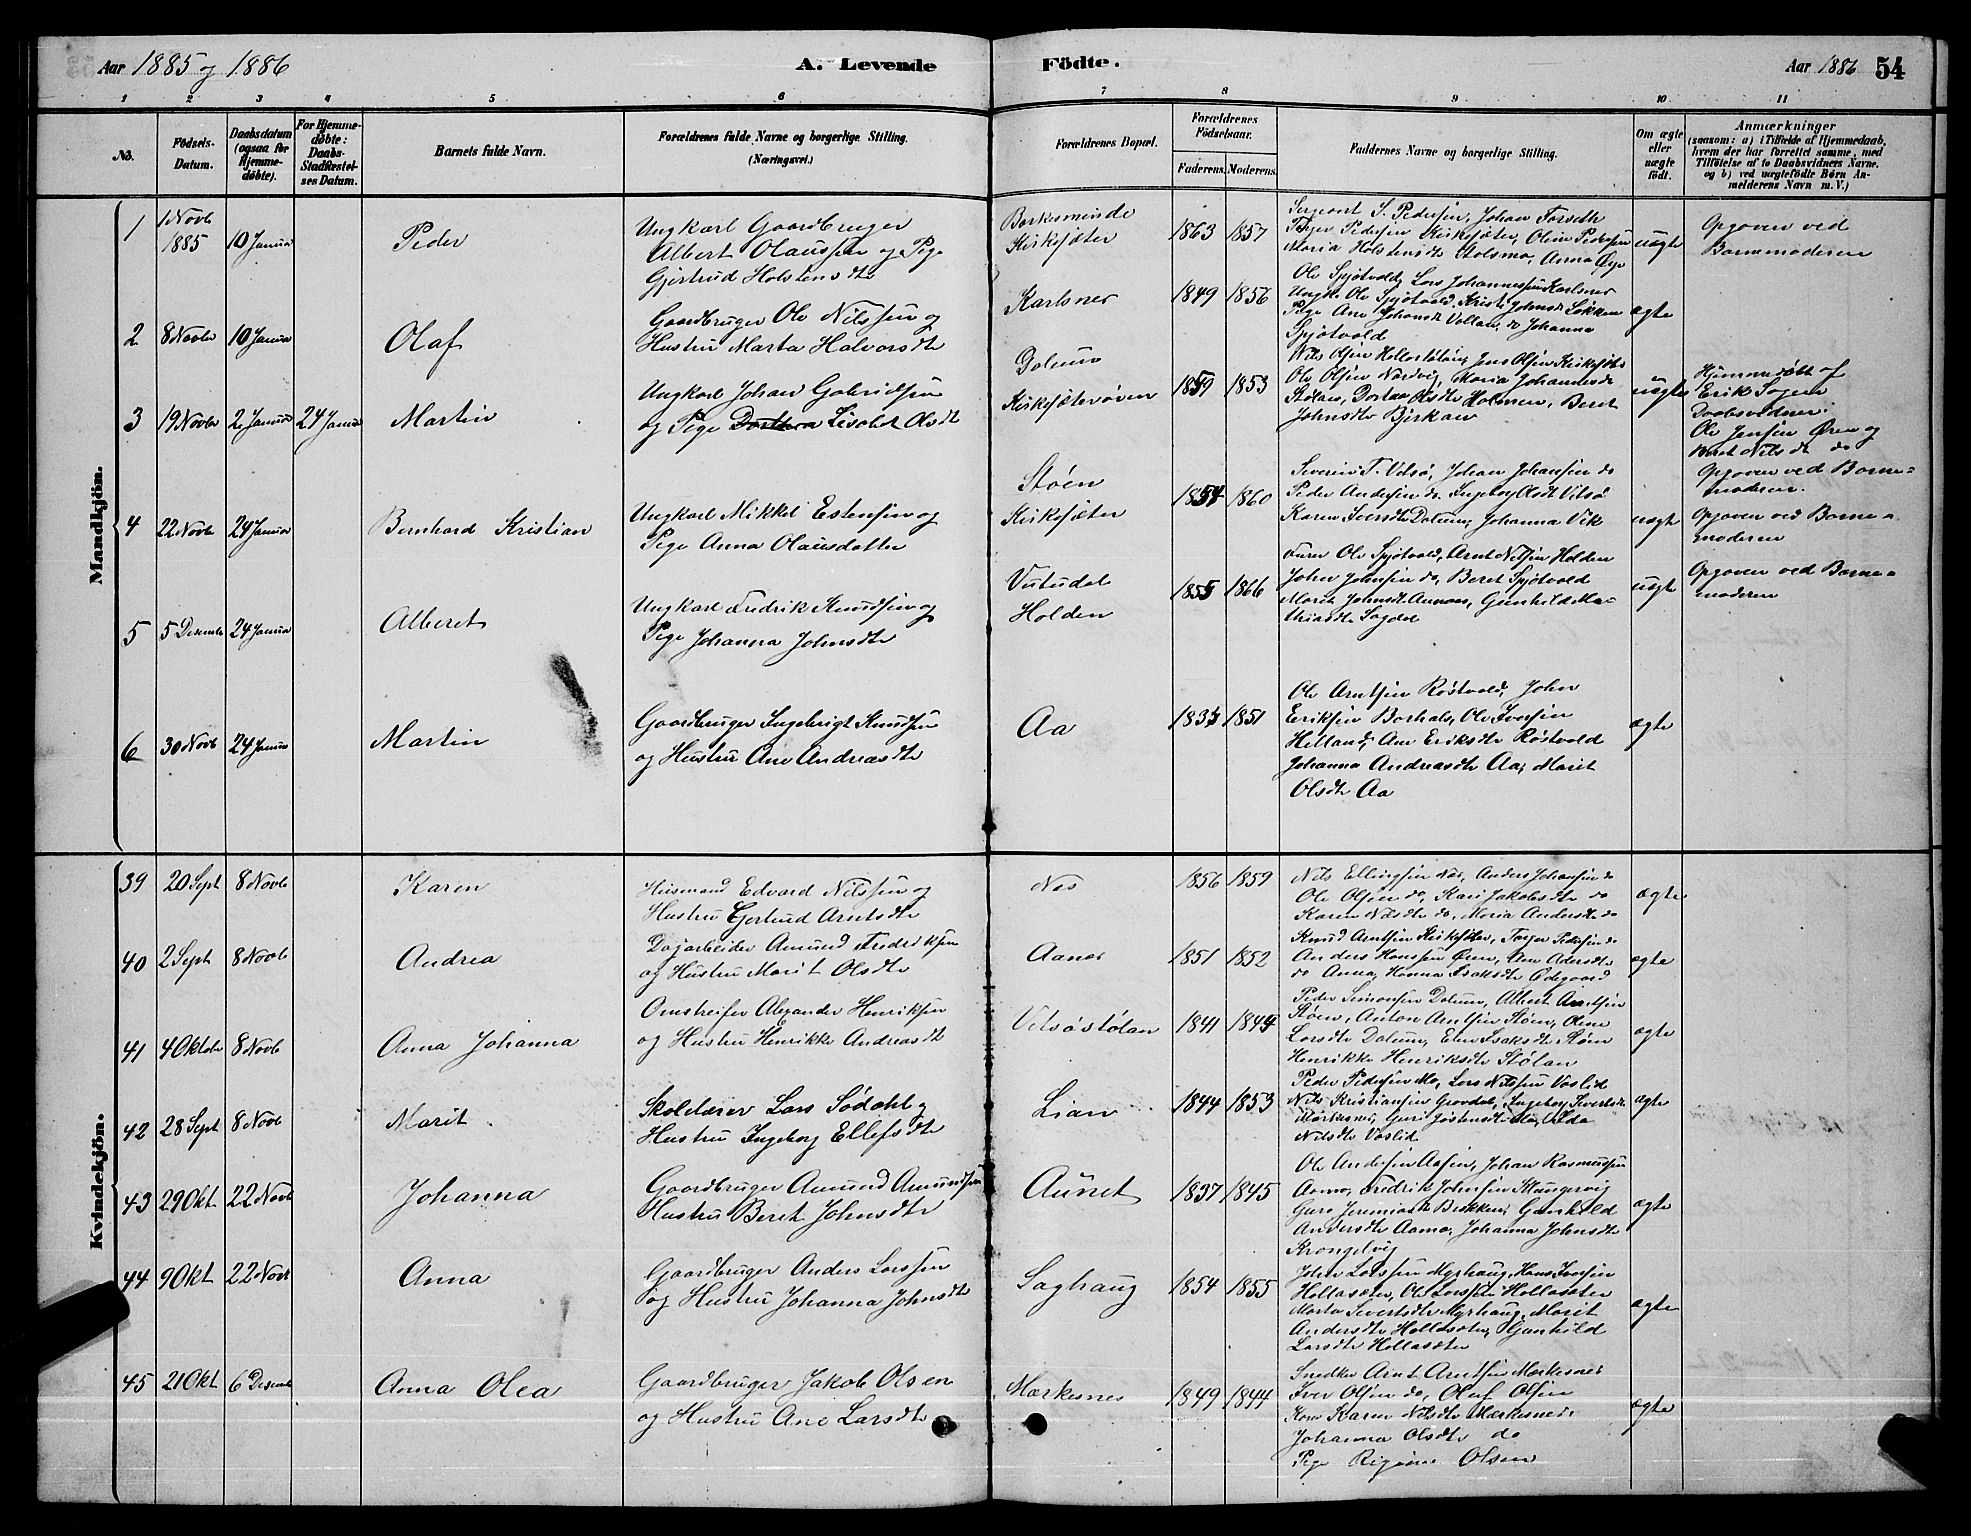 Aar 1885 og 1886
A. Levende Födte.
Aar 1886 54
1 2 3 4 5 6 7 8 9 10 11
No.
Födsels-Datum.
Daabsdatum (ogsaa for Hjemme-döbte).
For Hjemme-döbte: Daabs-Stadfæstel-ses Datum.
Barnets fulde Navn.
Forældrenes fulde Navne og borgerlige Stilling.
(Næringsvei.)
Forældrenes Bopæl.
Forældrenes Födselsaar.
Faderens. Moderens.
Faddernes Navne og borgerlige Stilling.
Om ægte eller uægte födt.
Anmærkninger
(saasom: a) i Tilfælde af Hjemmedaab, hvem der har forrettet samme, med Tilföielse af to Daabsvidners Navne, og b) ved uægtefödte Börn An-melderens Navn m. V.)
Mandkjön.
1 1 Novb 1885 10 Janua Peder
Ungkarl Gaardbruger
Albert Olaussen og Pige
Gjertrud Holstensdtr
Kirkesæter
1863 1857
Sergeant S. Pedersen, Johan Forseth
Pedersen Kirkesæter, Oline Pedersen
Maria Holstensdtr Stolsmo, Anna Øye
uægte
Opgaven ved
Barnemoderen
2 8 Novbr 10 Janua Olaf
Gaardbruger Ole Nilssen og
Hustru Marta Halvorsdtr
Karlsnes
1849 1856
Ole Spjøtvold, Lars Johannessen Karlsnes
Ungk. Ole Spjøtvold, Johnsdt Løkken
Pige Ane Johansdt Vollan, do Johanna
Spjøtvold
ægte
3 19 Novbr 2 Janua 24 Janua Martin
Ungkarl Johan Gabrielsen
og Pige Lisabet Olsdt
Dolum
Kirkesæterøren
1859 1853
Nils Olsen Hellastølan, Jens Olsen Kirkesæter
Ole Olsen Nordvig, Maria Johannesdtr
Stølan, Dortea Olsdtr Holmen, Beret
Johnsdtr Bjerkan
uægte
Hjemmedøbt af
Erik
Daabsvidner:
Ole Jensen Øren og
Beret Nilsdt do
Opgaven ved Barne-
moderen.
4 22 Novb 24 Janua Bernhard Kristian
Ungkarl Mikkel Estensen og
Pige Anna Olausdatter
Støen
Kirkesæter
1854 1860
Severin T. Vitsø, Johan Johansen do
Peder Andersen do, Ingeborg Olsdt Vitsø
Karen Dolum, Johanna Vik
uægt
Opgaven ved Barne-
moderen
5 5 Desemb 24 Janua Alberet
Ungkarl Fredrik Knudsen og
Pige Johanna Johnsdtr
Holden
1855 1866
Ole Spjøtvold, Arnt Nilsen Holden
John Johnsen do, Beret Spjøtvold
Marit Johnsdt Aunaas, Gunhild Ma-
thiasdtr Sagdal
uægt
Opgaven ved Barne-
moderen
6 30 Novb 24 Janua Martin
Gaardbruger Ingebrigt Knudsen
og Hustru Ane Andreasdtr
Aa
1835 1851
Ole Arntsen Røstvold, John
Eriksen Borhals, Ole Iversen
Helland, Ane Eriksdtr Røstvold
Johanna Andreasdtr Aa, Marit
Olsdtr Aa
ægte
Kvindekjön.
39 20 Sept 8 Novb Karen
Husmand Edvard Nilssen og
Hustru Gjertrud Arntsdtr
Nes
1856 1859
Nils Ellingsen Nes, Anders Johansen do
Ole Olsen do, Kari Jakobsdtr do
Karen Nilsdtr do, Maria Andersdtr do
ægte
40 2 Sept 8 Novb Andrea
Dagarbeider Amund Fredriksen
og Hustru Marit Olsdtr
Aanes
1851 1852
Knud Arntsen Kirkesæter, Torger Pedersen do
Anders Hanssen Øren, Ane Adersdtr
do Anna, Hanna Isaksdtr Ødegaard
ægte
41 4 Oktobr 8 Novb Anna Johanna
Omstreifer Alexander Henriksen
og Hustru Henrikke Andreasdt
Vitsøstølan
1841 1844
Peder Simonsen Dolum, Albert Arntsen
Støen, Anton Arntsen Støen, Oline
Larsdtr Dolum, Elen Isaksdtr Støen
Henrikke Henriksdtr Stølan
ægte
42 28 Sept 8 Novb Marit
Skolelærer Lars Södahl og
Hustru Ingeborg Ellefsdtr
Lian
1844 1853
Peder Pedersen Mo, Lars Nilssen Vaslid
Nils Kristiansen Grovdal, Ingeborg Sivertsdtr
Mærkesnes, Guri Jostensdtr Mo,
Nilsdtr Vaslid
ægte
43 29 Okt 22 Novb Johanna
Gaardbruger Amund Amundsen
Hustru Beret Johnsdtr
Aunet
1837 1845
Ole Andersen Aasen, Johan Rasmussen
Aamo, Fredrik Johnsen Slungervig
Guro Jeremiasdt Bekken, Gunhild
Andersdtr Aamo, Johanna Johnsdtr
Krongelvig
ægte
44 9 Okt 22 Novb Anna
Gaardbruger Anders Larssen
og Hustru Johanna Johnsdtr
Saghaug
1854 1855
John Larssen Myrhaug, Hans Iversen
Hollasæter, Ole Larssen Hollasæter
Marta Sivertsdtr Myrhaug, Marit
Andersdtr Hollasæter, Gunhild
Larsdtr Hollasæter
ægte
45 21 Okt 6 Desemb Anna Olea
Gaardbruger Jakob Olsen
og Hustru Ane Larsdtr
Mærkesnes
1849 1844
Snedker Arnt Arntsen Mærkesnes
Iver Olsen do, Oluf Olsen
Kone Karen Nilsdtr Mærkesnes
Johanna Olsdtr do
Pige Olsen
ægte